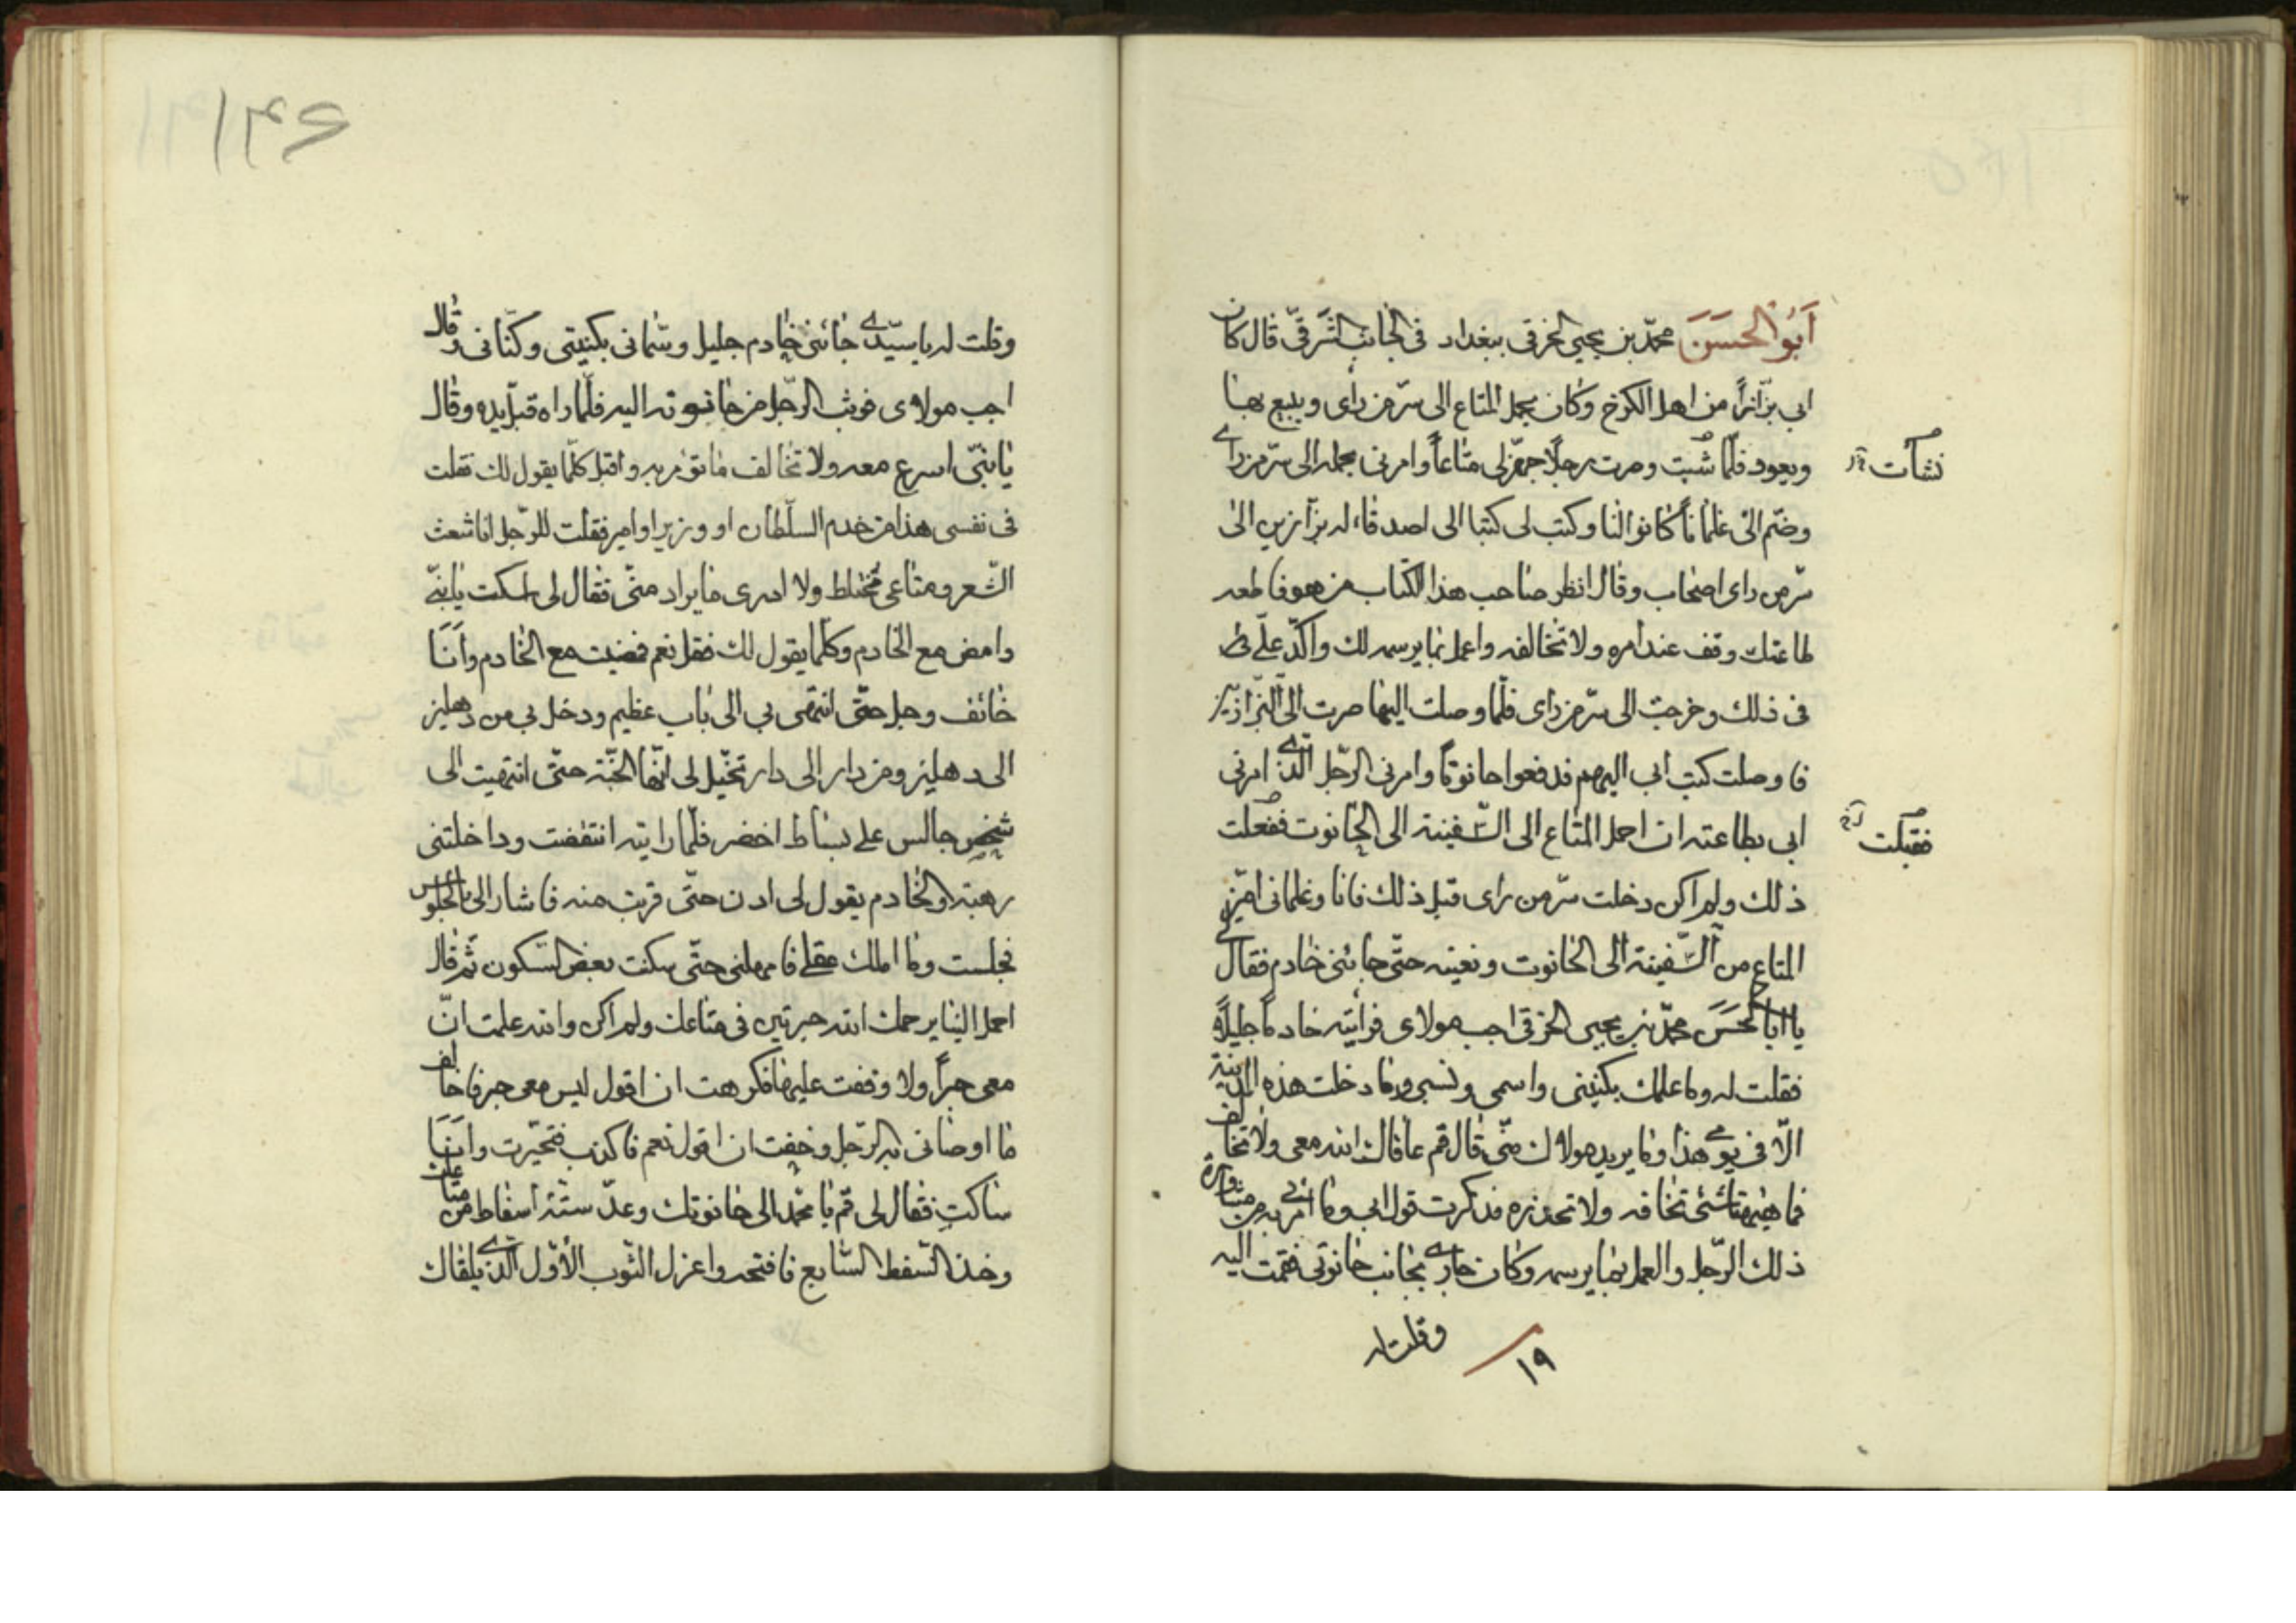 أَبُو الحَسَنَ محمّد بن يحيى الخرقى ببغداد فى الجانب الشَّرقىّ قال كان
ابى بزّازاً من اهل الكرخ وكان يحمل المتاع الى سرّ من رأى ويبيع بها
ويعود فلمّا شببت وصرت رجلاً جهّز لى متاعاً وامرنى بحمله الى سرّ من راى
نشأت
وضمّ الىّ غلماناً كانوا لنا وكتب لى كتبا الى اصدقاء له بزّازين الى
سرّ من راى اصحاب وقال انظر صاحب هذا الكتاب من هو فاطعه
طاعتك وقف عند امره ولا تخالفه واعمل بما يرسمه لك واكّد علىّ
فى ذلك وخرجت الى سرّ من راى فلمّا وصلت اليها صرت الى البزّازين
فاوصلت كتب ابى اليهم فدفعوا حانوتاً وامرنى الرّجل الّذى امرنى
ابى بطاعته ان احمل المتاع الى السّفينة الى الحانوت ففعلت
فقبلت
ذلك ولم اكن دخلت سرّ من راى قبل ذلك فانا وغلمانى اميّز
المتاع من السّفينة الى الحانوت ونعيّنه حتّى جائنى خادم فقال لى
يا ابا الحَسَنَ محمّد بن يحيى الخرقى اجب مولاى فرأيته خادماً جليلاً
فقلت له وما علمك بكنيتى واسمى ونسبى وما دخلت هذه المدينة
الّا فى يومى هذا وما يريد مولاك منّى قال قم عافاك الله معى ولا تخالف
فما هيهنا شئ تخافه ولا تحذره فذكرت قول ابى وما امرنى به من مشاورة
ذلك الرّجل والعمل بما يرسمه وكان جارى بجانب حانوتى فقمت اليه
وقلت له
١٩
١٤٦
وقلت له يا سيّدى جائنى خادم جليل وسمّانى بكنيتى وكنّانى وقال
اجب مولاى فوثب الرّجل من حانوته اليه فلمّا راه قبّل يده وقال
يا بنىّ اسرع معه ولا تخالف ما تؤمر به واقبل كلّما يقول لك فقلت
فى نفسى هذا من خدم السلّطان او وزير او امير فقلت للرّجل انا شعث
الشّعر ومتاعى مختلط ولا ادرى ما يراد منّى فقال لى اسكت يا بنىّ
وامض مع الخادم وكلّما يقول لك فقل نعم فمضيت مع الخادم وأنَا
خائف وجل حتّى انتهى بى الى باب عظيم ودخل بى من دهليز
الى دهليز ومن دار الى دار تخيّل لى انّها الجنّة حتّى انتهيت الى
شخص جالس على بساط اخضر فلمّا رايته انتفضت وداخلتنى
رهبة والخادم يقول لى ادن حتّى قربت منه فاشار الى بالجلوس
فجلست وما املك عقلى فامهلنى حتّى سكنت بعض السّكون ثم قال
احمل الينا يرحمك الله حبرتين فى متاعك ولم اكن والله علمت انّ
معى حبراً ولا وقفت عليها فكرهت ان اقول ليس معى حبر فاخالف
ما اوصانى به الرّجل وخفت ان اقول نعم فاكذب فتحيّرت وأنَا
ساكت فقال لى قم يا محمّد الى حانوتك وعدّ ستّة اسفاط من متاعك
وخذ السّفط السّابع فافتحه واعزل الثّوب الأوّل الّذى يلقاك